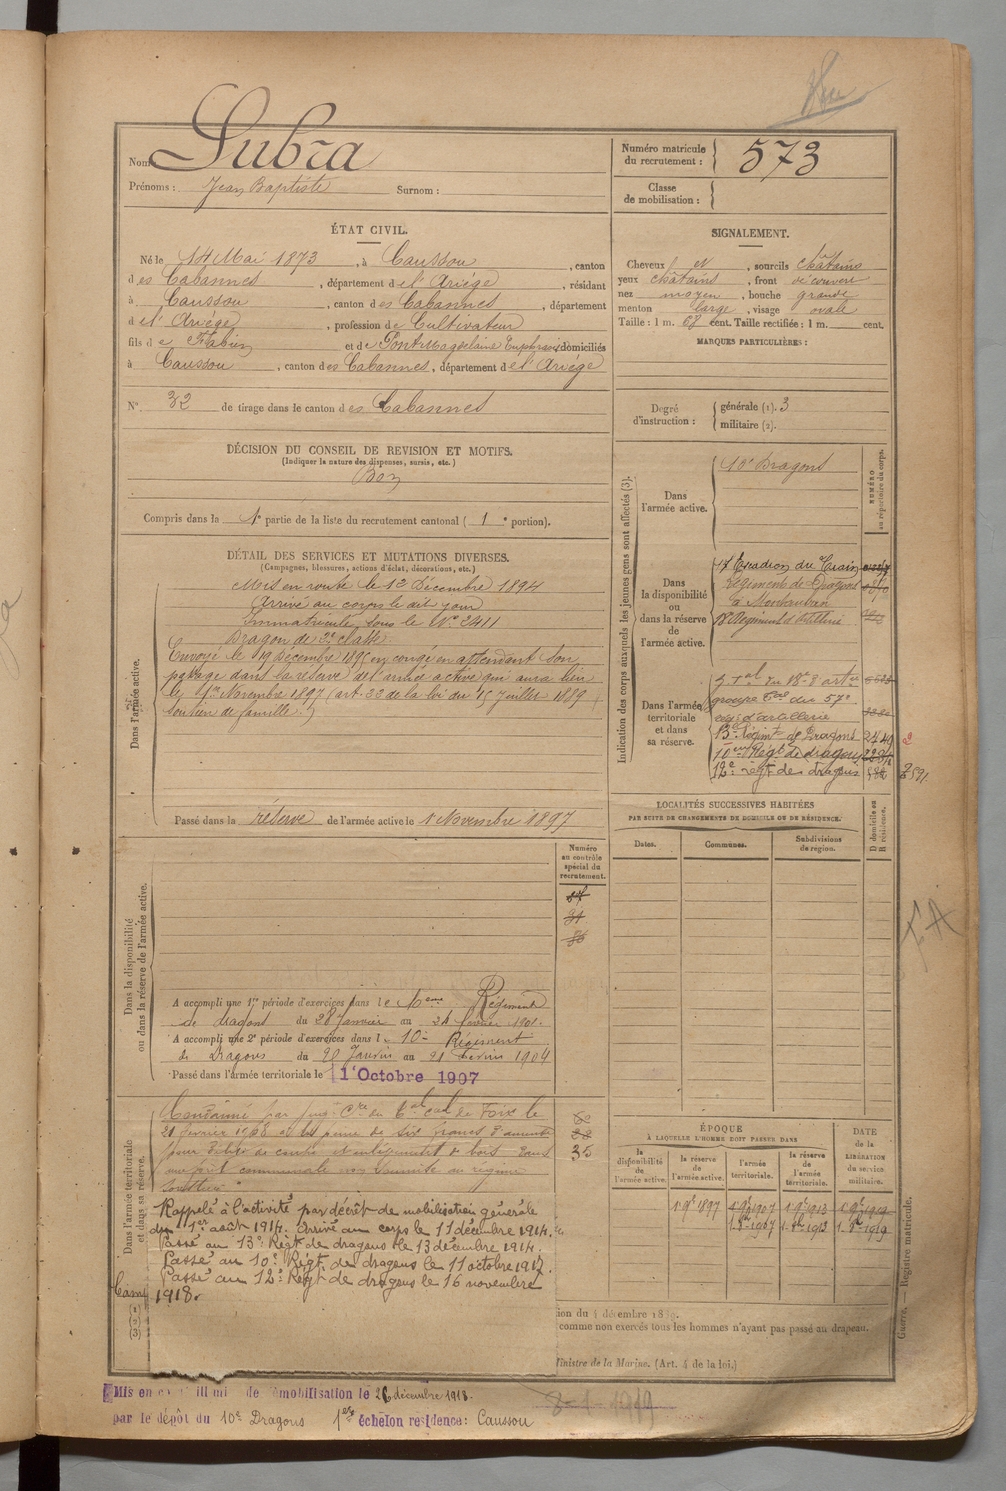 Nom : Subra
Prénoms : Jean Baptiste Surnom :
Numéro matricule du recrutement : 573
Classe de mobilisation :
ÉTAT CIVIL.
Né le 14 Mai 1873, à Caussou, canton
des Cabannes, département de l'Ariége, résidant
à Caussou, canton des Cabannes, département
de l'Ariége, profession de Cultivateur
fils de Fabien et de Pont Magdelaine Euphrasie, domiciliés
à Caussou, canton des Cabannes, département de l'Ariége
N°. 32 de tirage dans le canton des Cabannes
SIGNALEMENT.
Cheveux et, sourcils châtains
yeux châtains, front découvert
nez moyen, bouche grande
menton large, visage ovale
Taille : 1 m. 67 cent. Taille rectifiée : 1 m. cent.
MARQUES PARTICULIÈRES :
Degré d'instruction :
générale (1). 3
militaire (2).
DÉCISION DU CONSEIL DE REVISION ET MOTIFS.
(Indiquer la nature des dispenses, sursis, etc.)
Bon
Compris dans la 1e partie de la liste du recrutement cantonal ( 1e portion).
DÉTAIL DES SERVICES ET MUTATIONS DIVERSES.
(Campagnes, blessures, actions d'éclat, décorations, etc.)
Dans l'armée active.
Mis en route le 1er Décembre 1894
Arrivé au corps le dit jour
Immatriculé sous le N° 2411
Dragon de 2e classe.
Envoyé le 19 Décembre 1895 en congé en attendant son
passage dans la réserve de l'armée active qui aura lieu
le 1er Novembre 1897 (art. 22 de la loi du 15 Juillet 1889
soutien de famille.)
Passé dans la réserve de l'armée active le 1 Novembre 1897
Indication des corps auxquels les jeunes gens sont affectés (3).
NUMÉRO au répertoire du corps.
Dans l'armée active.
10e Dragons
Dans la disponibilité ou dans la réserve de l'armée active.
17 Escadron du Train
Régiment de Dragons
à Montauban
18e Régiment d'artillerie
Dans l'armée territoriale et dans sa réserve.
groupe du 57e
rég. d'artillerie
13e Régimt de Dragons 2749
10eme Régt de dragons
12e régt de dragons 2591
LOCALITÉS SUCCESSIVES HABITÉES
PAR SUITE DE CHANGEMENTS DE DOMICILE OU DE RÉSIDENCE.
Dates. Communes. Subdivisions de région. D domicile ou R résidence.
Numéro au contrôle spécial du recrutement.
Dans la disponibilité ou dans la réserve de l'armée active.
A accompli une 1re période d'exercices dans le 10eme Régiment
de dragons du 28 Janvier au 24 février 1901.
A accompli une 2e période d'exercices dans l 10e Régiment
de Dragons du 20 Janvier au 21 Février 1904
Passé dans l'armée territoriale le 1er Octobre 1907
Dans l'armée territoriale et dans sa réserve.
Condamné par jugt Cre du Tal de Foix le
21 février 1908 à la peine de six francs d'amende
pour délit de coupe et enlèvement de bois dans
une forêt communale non soumise au régime
forestier.
35
Rappelé à l'activité par décret de mobilisation générale
du 1er août 1914. Arrivé au corps le 11 décembre 1914.
Passé au 13e Régt de dragons le 13 décembre 1914.
Passé au 10e Régt de dragons le 11 octobre 1917.
Passé au 12e Régt de dragons le 16 novembre
1918.
Cam
ÉPOQUE
À LAQUELLE L'HOMME DOIT PASSER DANS
la disponibilité de l'armée active. la réserve de l'armée active. l'armée territoriale. la réserve de l'armée territoriale.
DATE de la LIBÉRATION du service militaire.
1 9e 1897 1 9e 1907 1 9e 1913 1 9e 1919
1. 8e 1907 1. 8e 1913 1. 8e 1919
ion du 4 décembre 1889.
comme non exercés tous les hommes n'ayant pas passé au drapeau.
Ministre de la Marine. (Art. 4 de la loi.)
Guerre. — Registre matricule.
FA
Mis en démobilisation le 26 décembre 1918.
par le dépôt du 10e Dragons 1er échelon résidence : Caussou